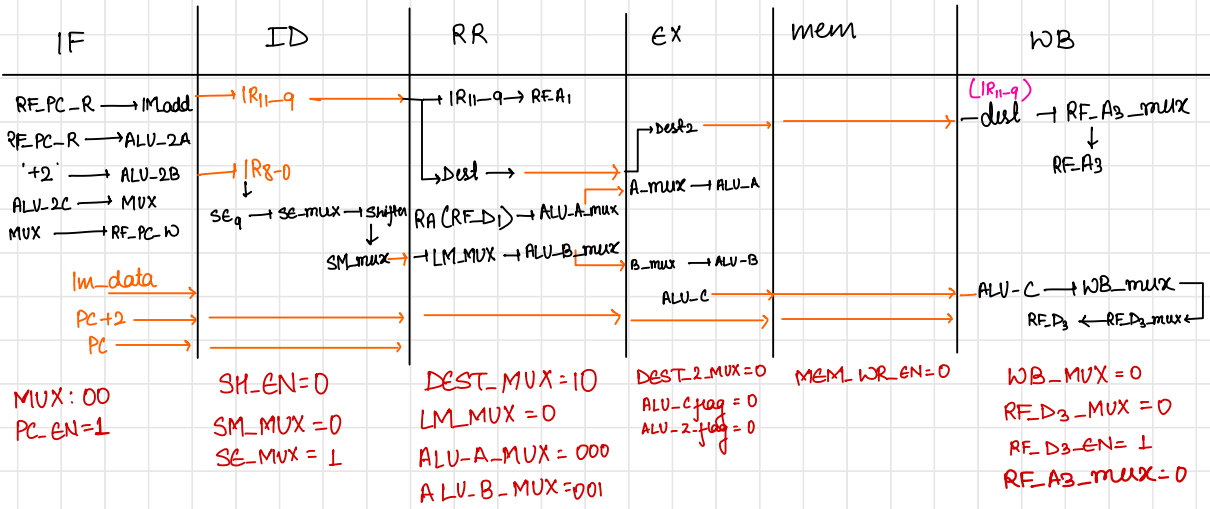 IF ID RR EX mem WB
RF_PC_R → IM_add
RF_PC_R → ALU_2A
'+2' → ALU_2B
ALU_2C → MUX
MUX → RF_PC_W
Im_data
PC+2
PC
MUX: 00
PC_EN=1
IR11-9
IR8-0
SE9 → SE_mux → Shifter
SM_mux
SH_EN=0
SM_MUX=0
SE_MUX=1
IR11-9 → RF_A1
Dest →
RA (RF_D1) → ALU_A_mux
LM_MUX → ALU_B_mux
DEST_MUX=10
LM_MUX=0
ALU-A_MUX=000
ALU-B_MUX=001
Dest2
A_mux → ALU_A
B_mux → ALU-B
ALU_C
DEST_2_MUX=0
ALU_C flag = 0
ALU-2-flag = 0
MEM_WR_EN=0
(IR11-9)
dest → RF_A3_mux
RF_A3
ALU-C → WB_mux
RF_D3 ← RF_D3_mux
WB_MUX = 0
RF_D3_MUX = 0
RF_D3_EN= 1
RF_A3_mux=0